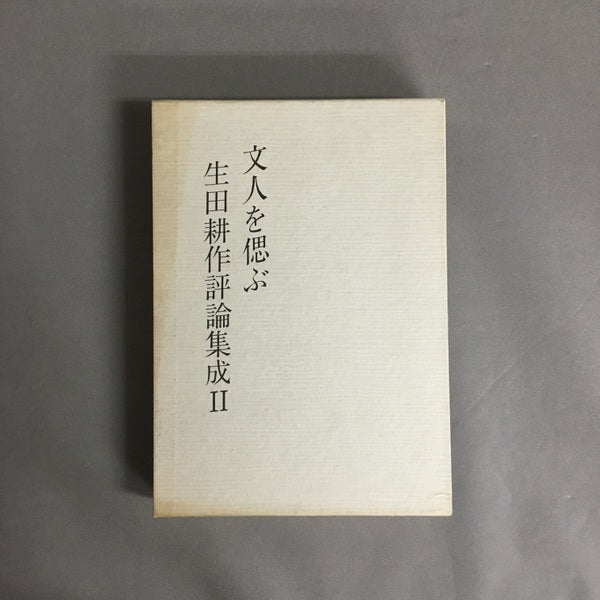 文人を偲ぶ
生田耕作評論集成II